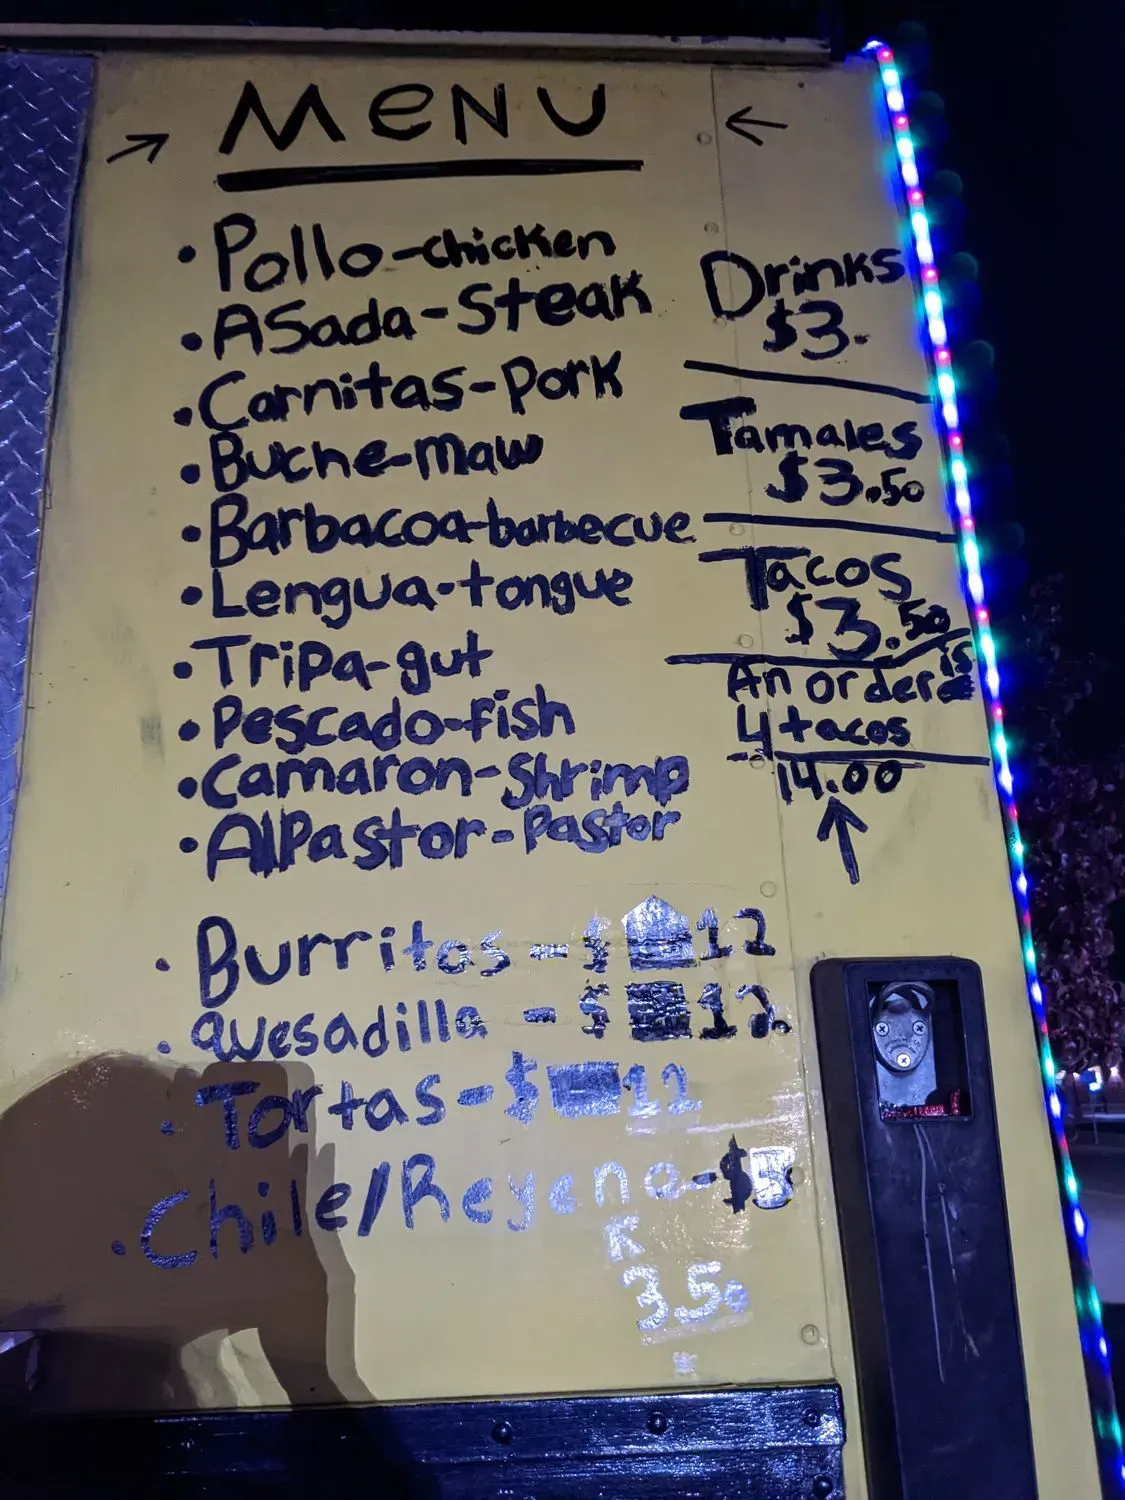 MeNU
Pollo-chicken
ASada-Steak
Carnitas-Pork
Buche-maw
Barbacoa-barbecue
Lengua-tongue
Tripa-gut
Pescado-fish
Camaron-Shrimp
AlPastor-Pastor
Burritos-$12
Quesadilla-$12
Tortas-$12
Chile/Reyeno-$
3.50
Drinks
$3.
Tamales
$3.50
Tacos
$3.50
An order is
4 tacos
14.00